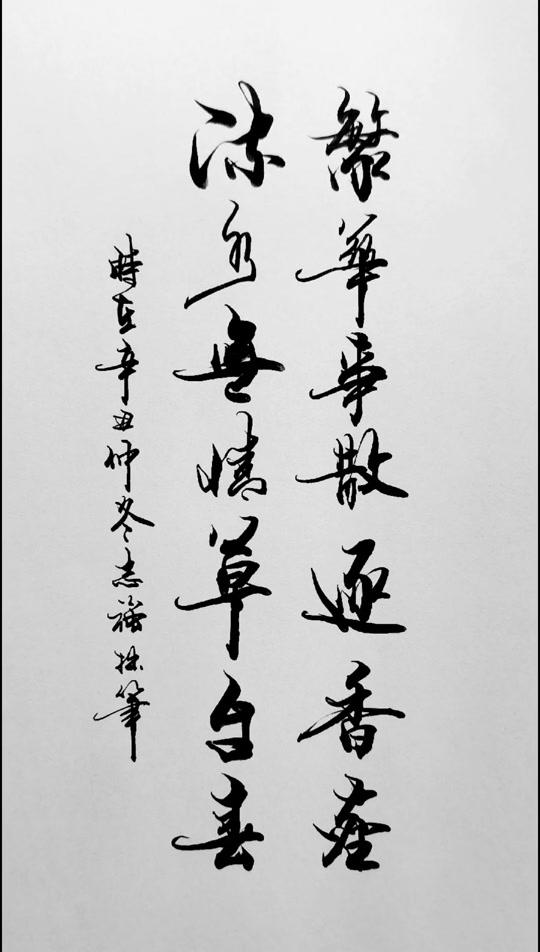 繁華事散逐香塵
流水無情草自春
時在辛丑仲冬志強拙筆